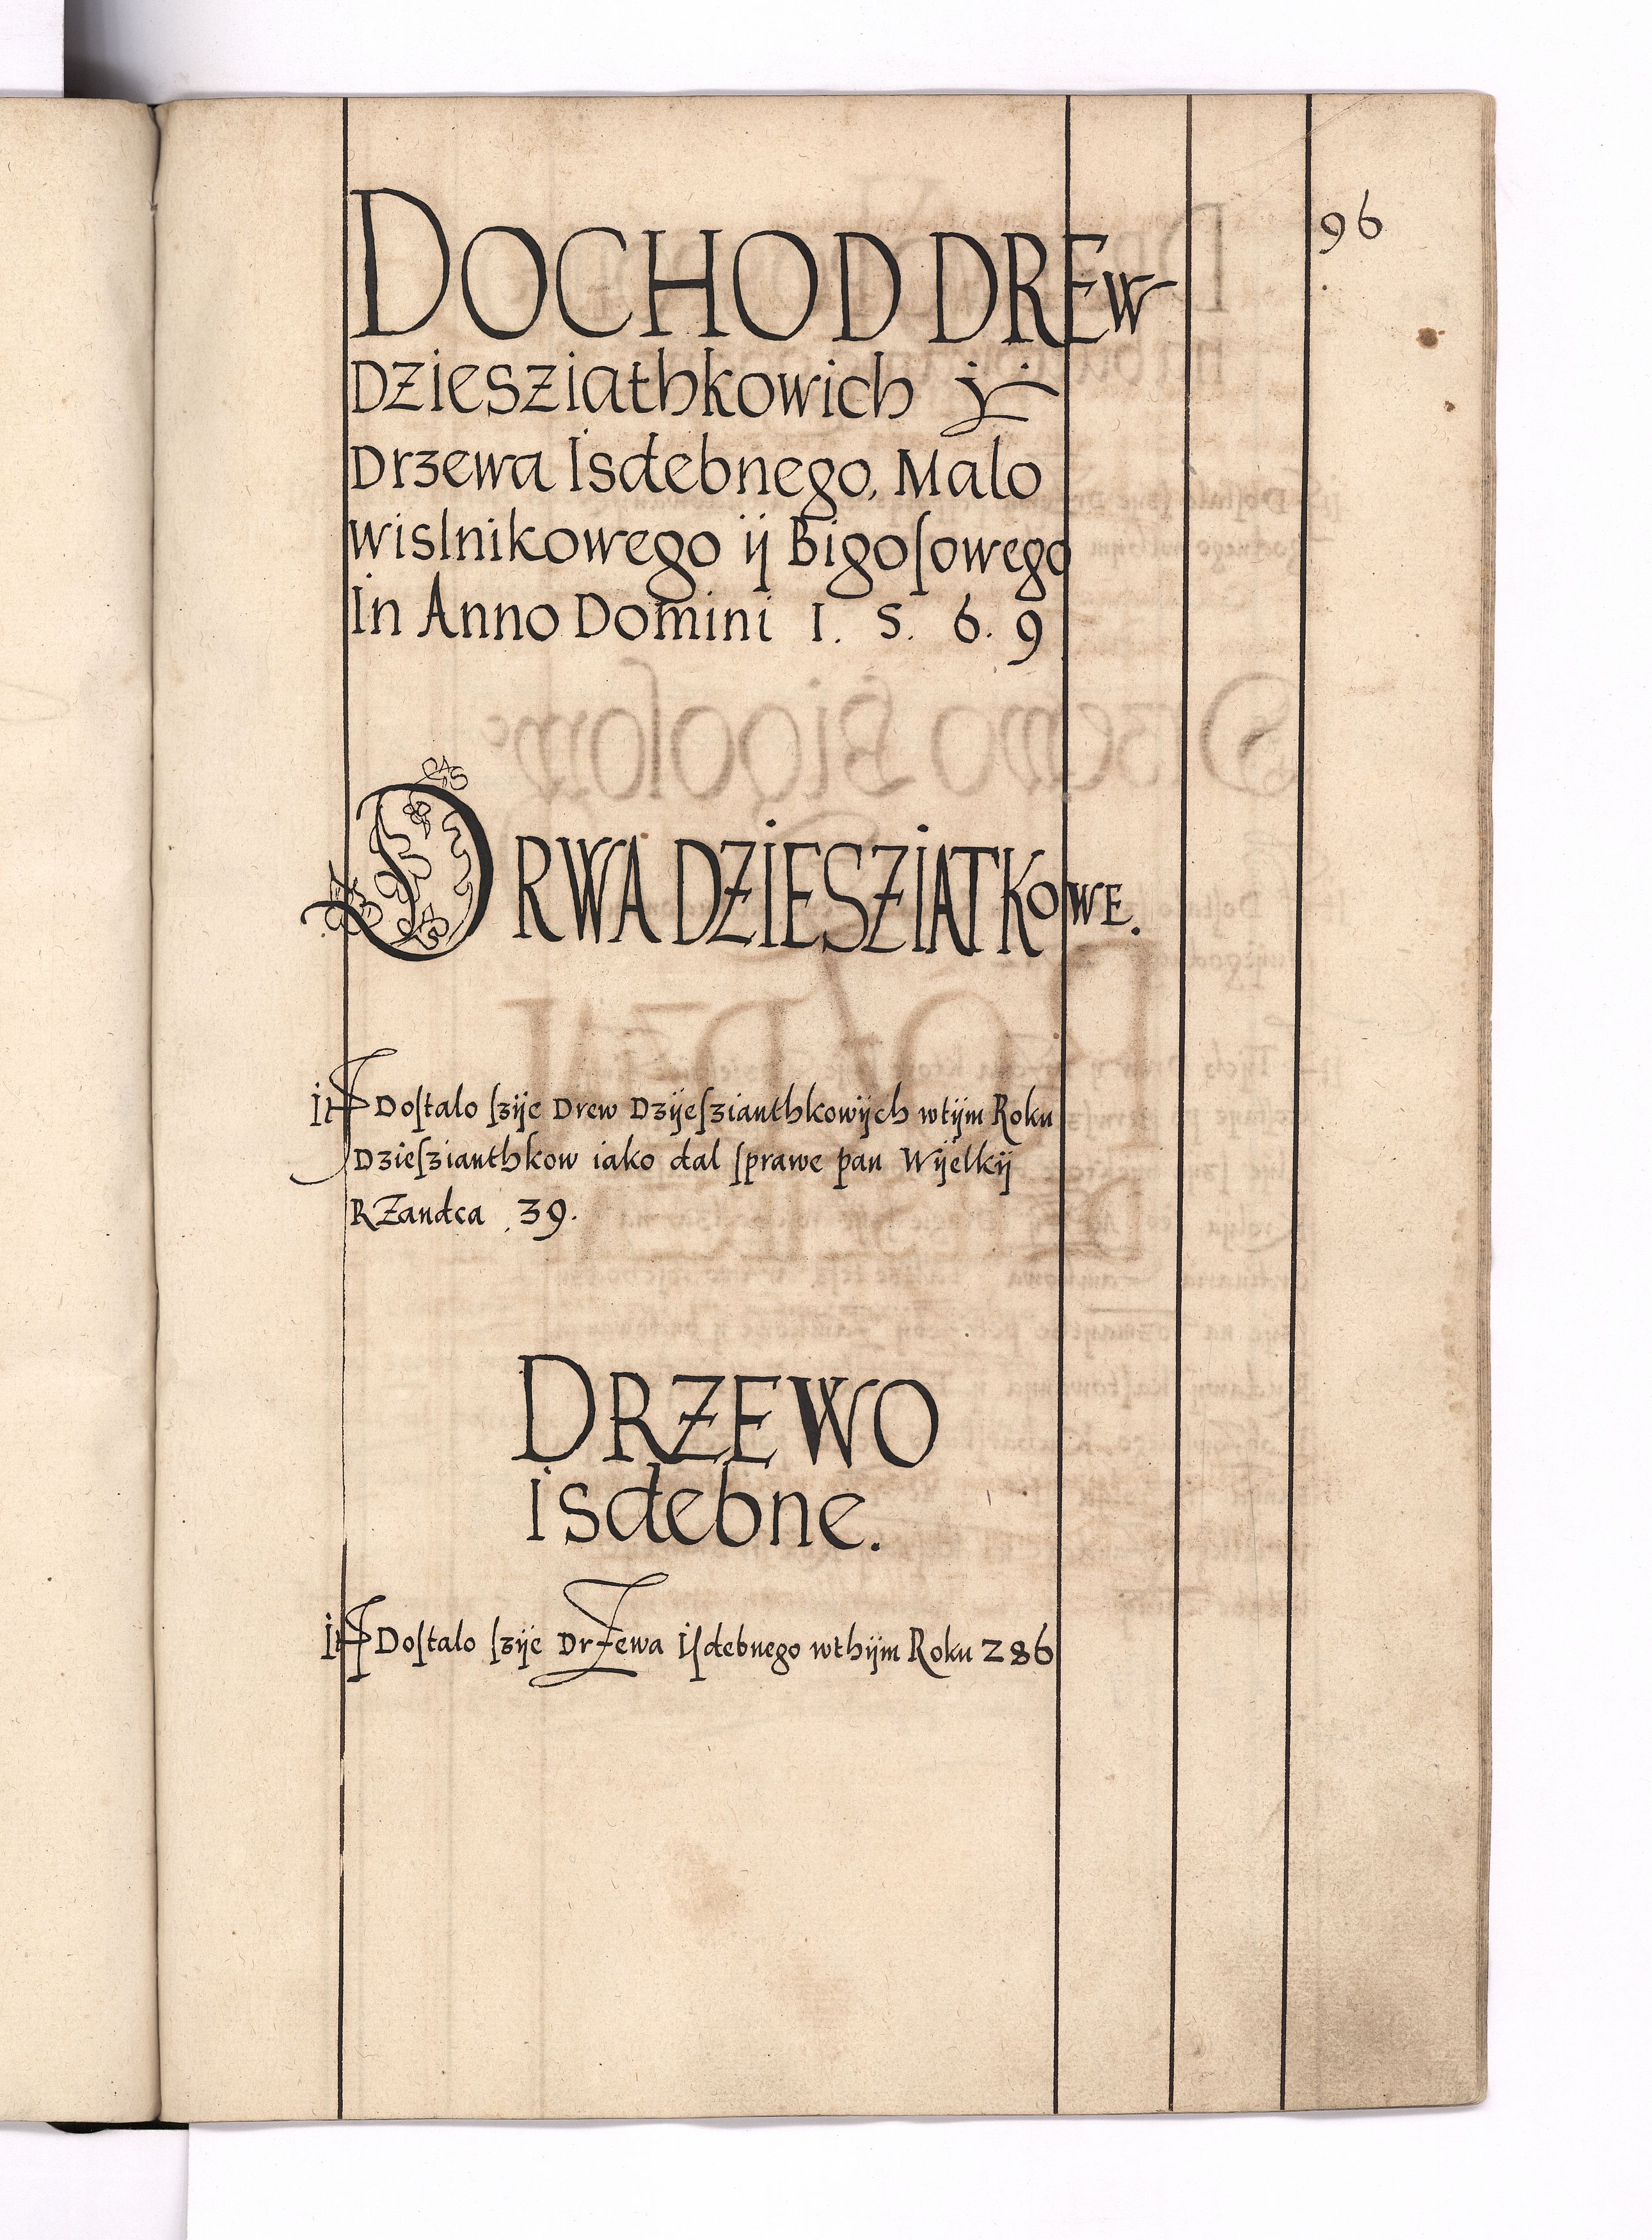 96
DOCHOD DREW
DZIESZIATHKOWICH ÿ
Drzewa Isdebnego, Malo
wislnikowego ij Bigoſowego
In Anno Domini 1. 5. 6. 9
DRWA DZIESZIATKOWE.
It Doſtalo ſzÿe Drew Dzÿeſzianthkowÿch wtÿm Roku
Dzieſzianthkow iako dal ſprawe pan Wÿelkÿ
RZandca 39.
DRZEWO
isdebne.
It Doſtalo ſzÿe DrZewa iſdebnego wthÿm Roku 286